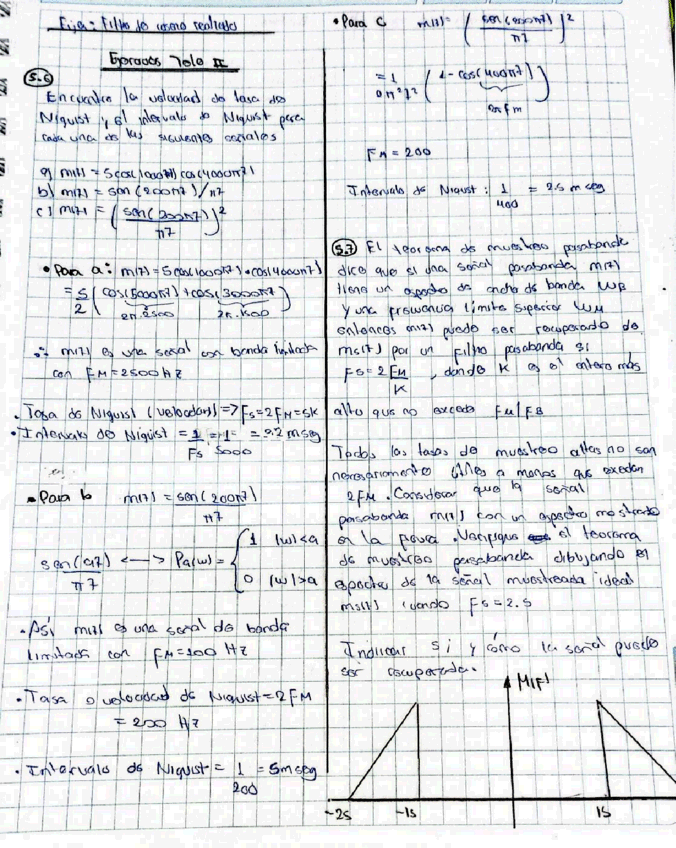 Fija: Filtro de como realizado
Ejercicios Tele II
5.6
Encuentre la velocidad de tasa de
Niquist y el intervalo de Niquist para
cada una de las siguientes señales
a) m(t) = 5cos(1000πt) cos(4000πt)
b) m(t) = sen(200πt)/πt
c) m(t) = (sen(200πt)/πt)²
• Para a: m(t) = 5cos(1000πt)·cos(4000πt)
= 5/2 (cos(5000πt) + cos(3000πt))
2π.2500 2π.1500
∴ m(t) es una señal con banda limitada
con FM = 2500 Hz
• Tasa de Niquist (velocidad) => Fs = 2FM = 5K
• Intervalo de Niquist = 1/Fs = 1/5000 = 0.2 mseg
• Para b m(t) = sen(200πt)/πt
sen(at)/πt <—> Pa(w) = { 1 |w|<a
0 |w|>a
• Así m(t) es una señal de banda
limitada con FM = 100 Hz
• Tasa o velocidad de Niquist = 2FM
= 200 Hz
• Intervalo de Niquist = 1/200 = 5mseg
• Para c m(t) = (sen(200πt)/πt)²
= 1/2π²t² (1 - cos(400πt))
2πfm
FM = 200
Intervalo de Niquist: 1/400 = 2.5 mseg
5.7 El teorema de muestreo pasabanda
dice que si una señal pasabanda m(t)
tiene un espectro de ancho de banda WB
y una frecuencia límite superior WM
entonces m(t) puede ser recuperado de
ms(t) por un filtro pasabanda si
Fs = 2FM/K, donde K es el entero más
alto que no exceda FM/FB
Todas las tasas de muestreo altas no son
necesariamente útiles a menos que excedan
2FM. Considerar que la señal
pasabanda m(t) con un espectro mostrado
en la figura. Verifique el teorema
de muestreo pasabanda dibujando el
espectro de la señal muestreada ideal
ms(t) cuando Fs = 2.5
Indicar si y cómo la señal puede
ser recuperada.
M(F)
-25 -15 15